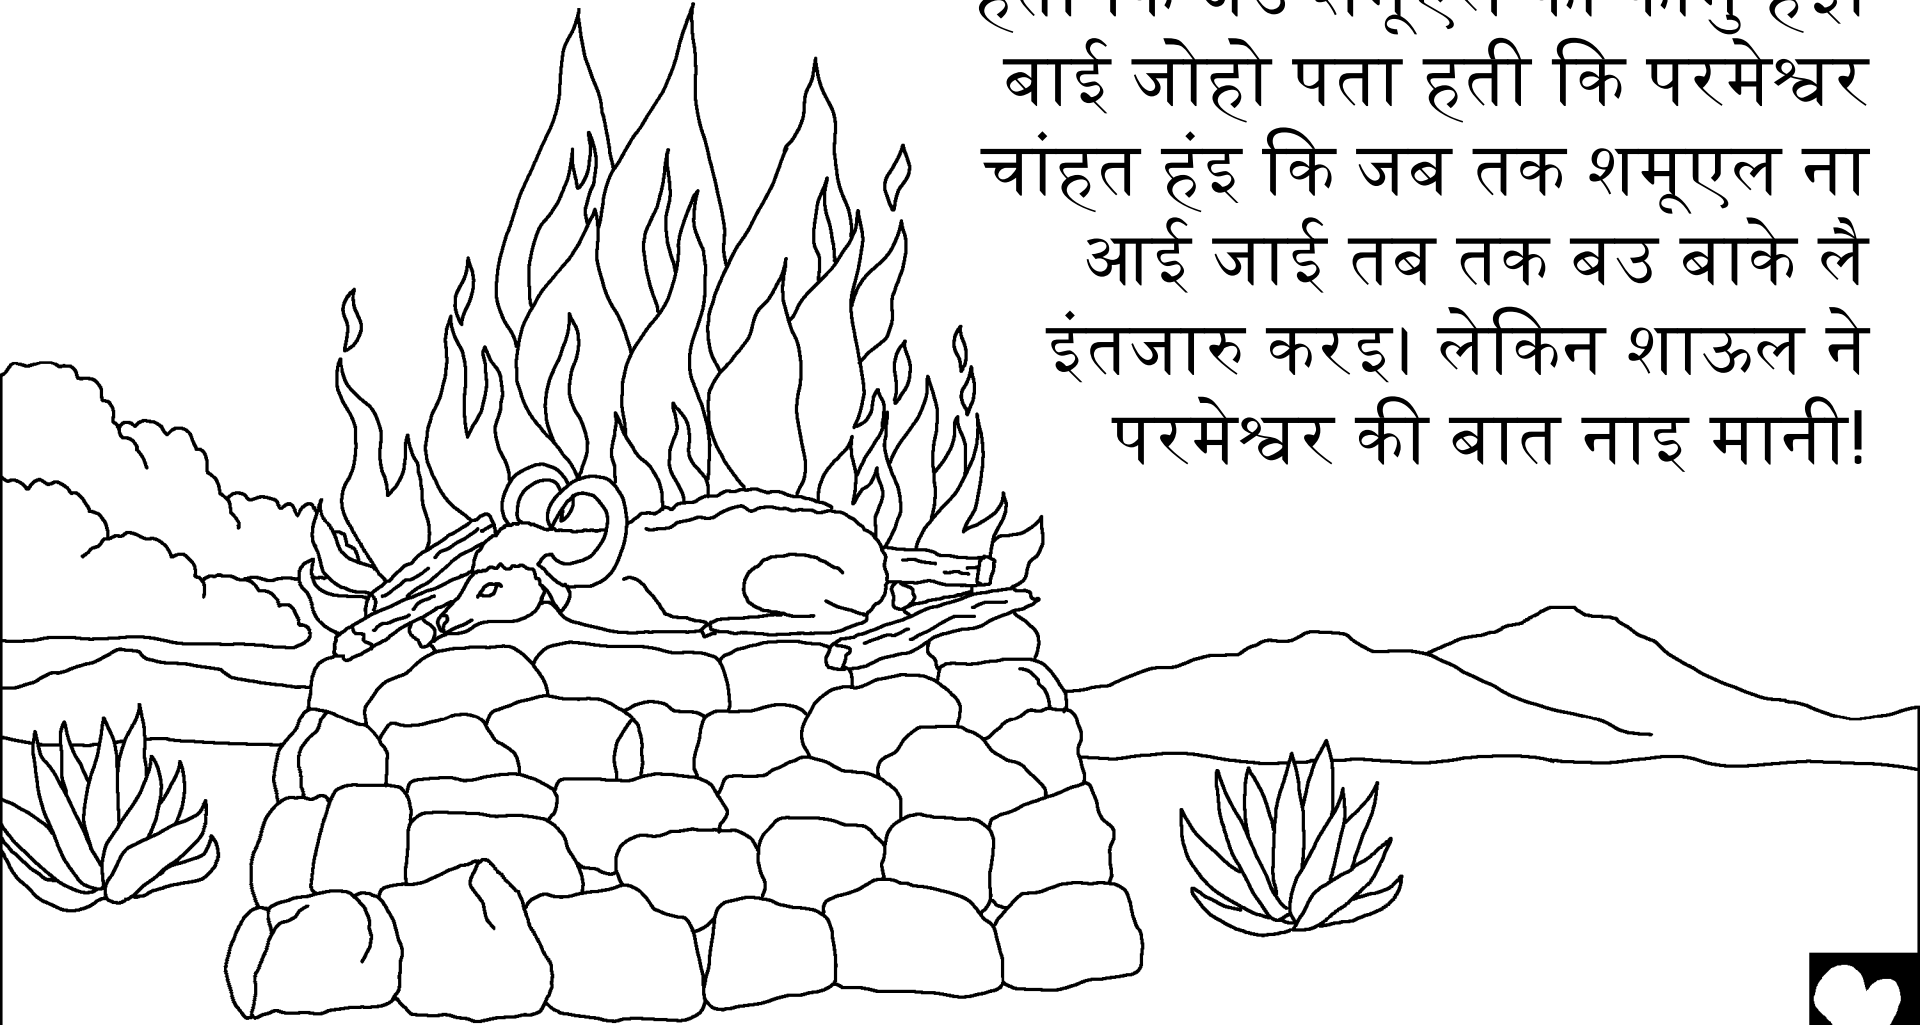 बाई जोहो पता हती कि परमेश्वर
चांहत हंइ कि जब तक शमूएल ना
आई जाई तब तक बउ बाके लै
इंतजारु करइ। लेकिन शाऊल ने
परमेश्वर की बात नाइ मानी!